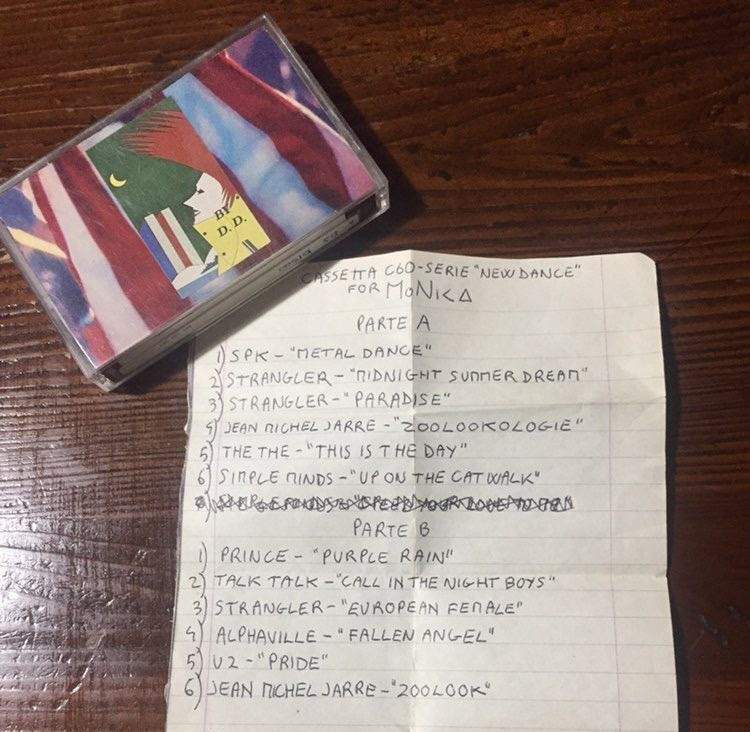 BY
D.D.
CASSETTA C60-SERIE "NEW DANCE"
FOR MONICA
PARTE A
1) SPK - "METAL DANCE"
2) STRANGLER - "MIDNIGHT SUMMER DREAM"
3) STRANGLER - "PARADISE"
4) JEAN MICHEL JARRE - "ZOOLOOKOLOGIE"
5) THE THE - "THIS IS THE DAY"
6) SIMPLE MINDS - "UP ON THE CATWALK"
PARTE B
1) PRINCE - "PURPLE RAIN"
2) TALK TALK - "CALL IN THE NIGHT BOYS"
3) STRANGLER - "EUROPEAN FEMALE"
4) ALPHAVILLE - "FALLEN ANGEL"
5) U2 - "PRIDE"
6) JEAN MICHEL JARRE - "ZOOLOOK"